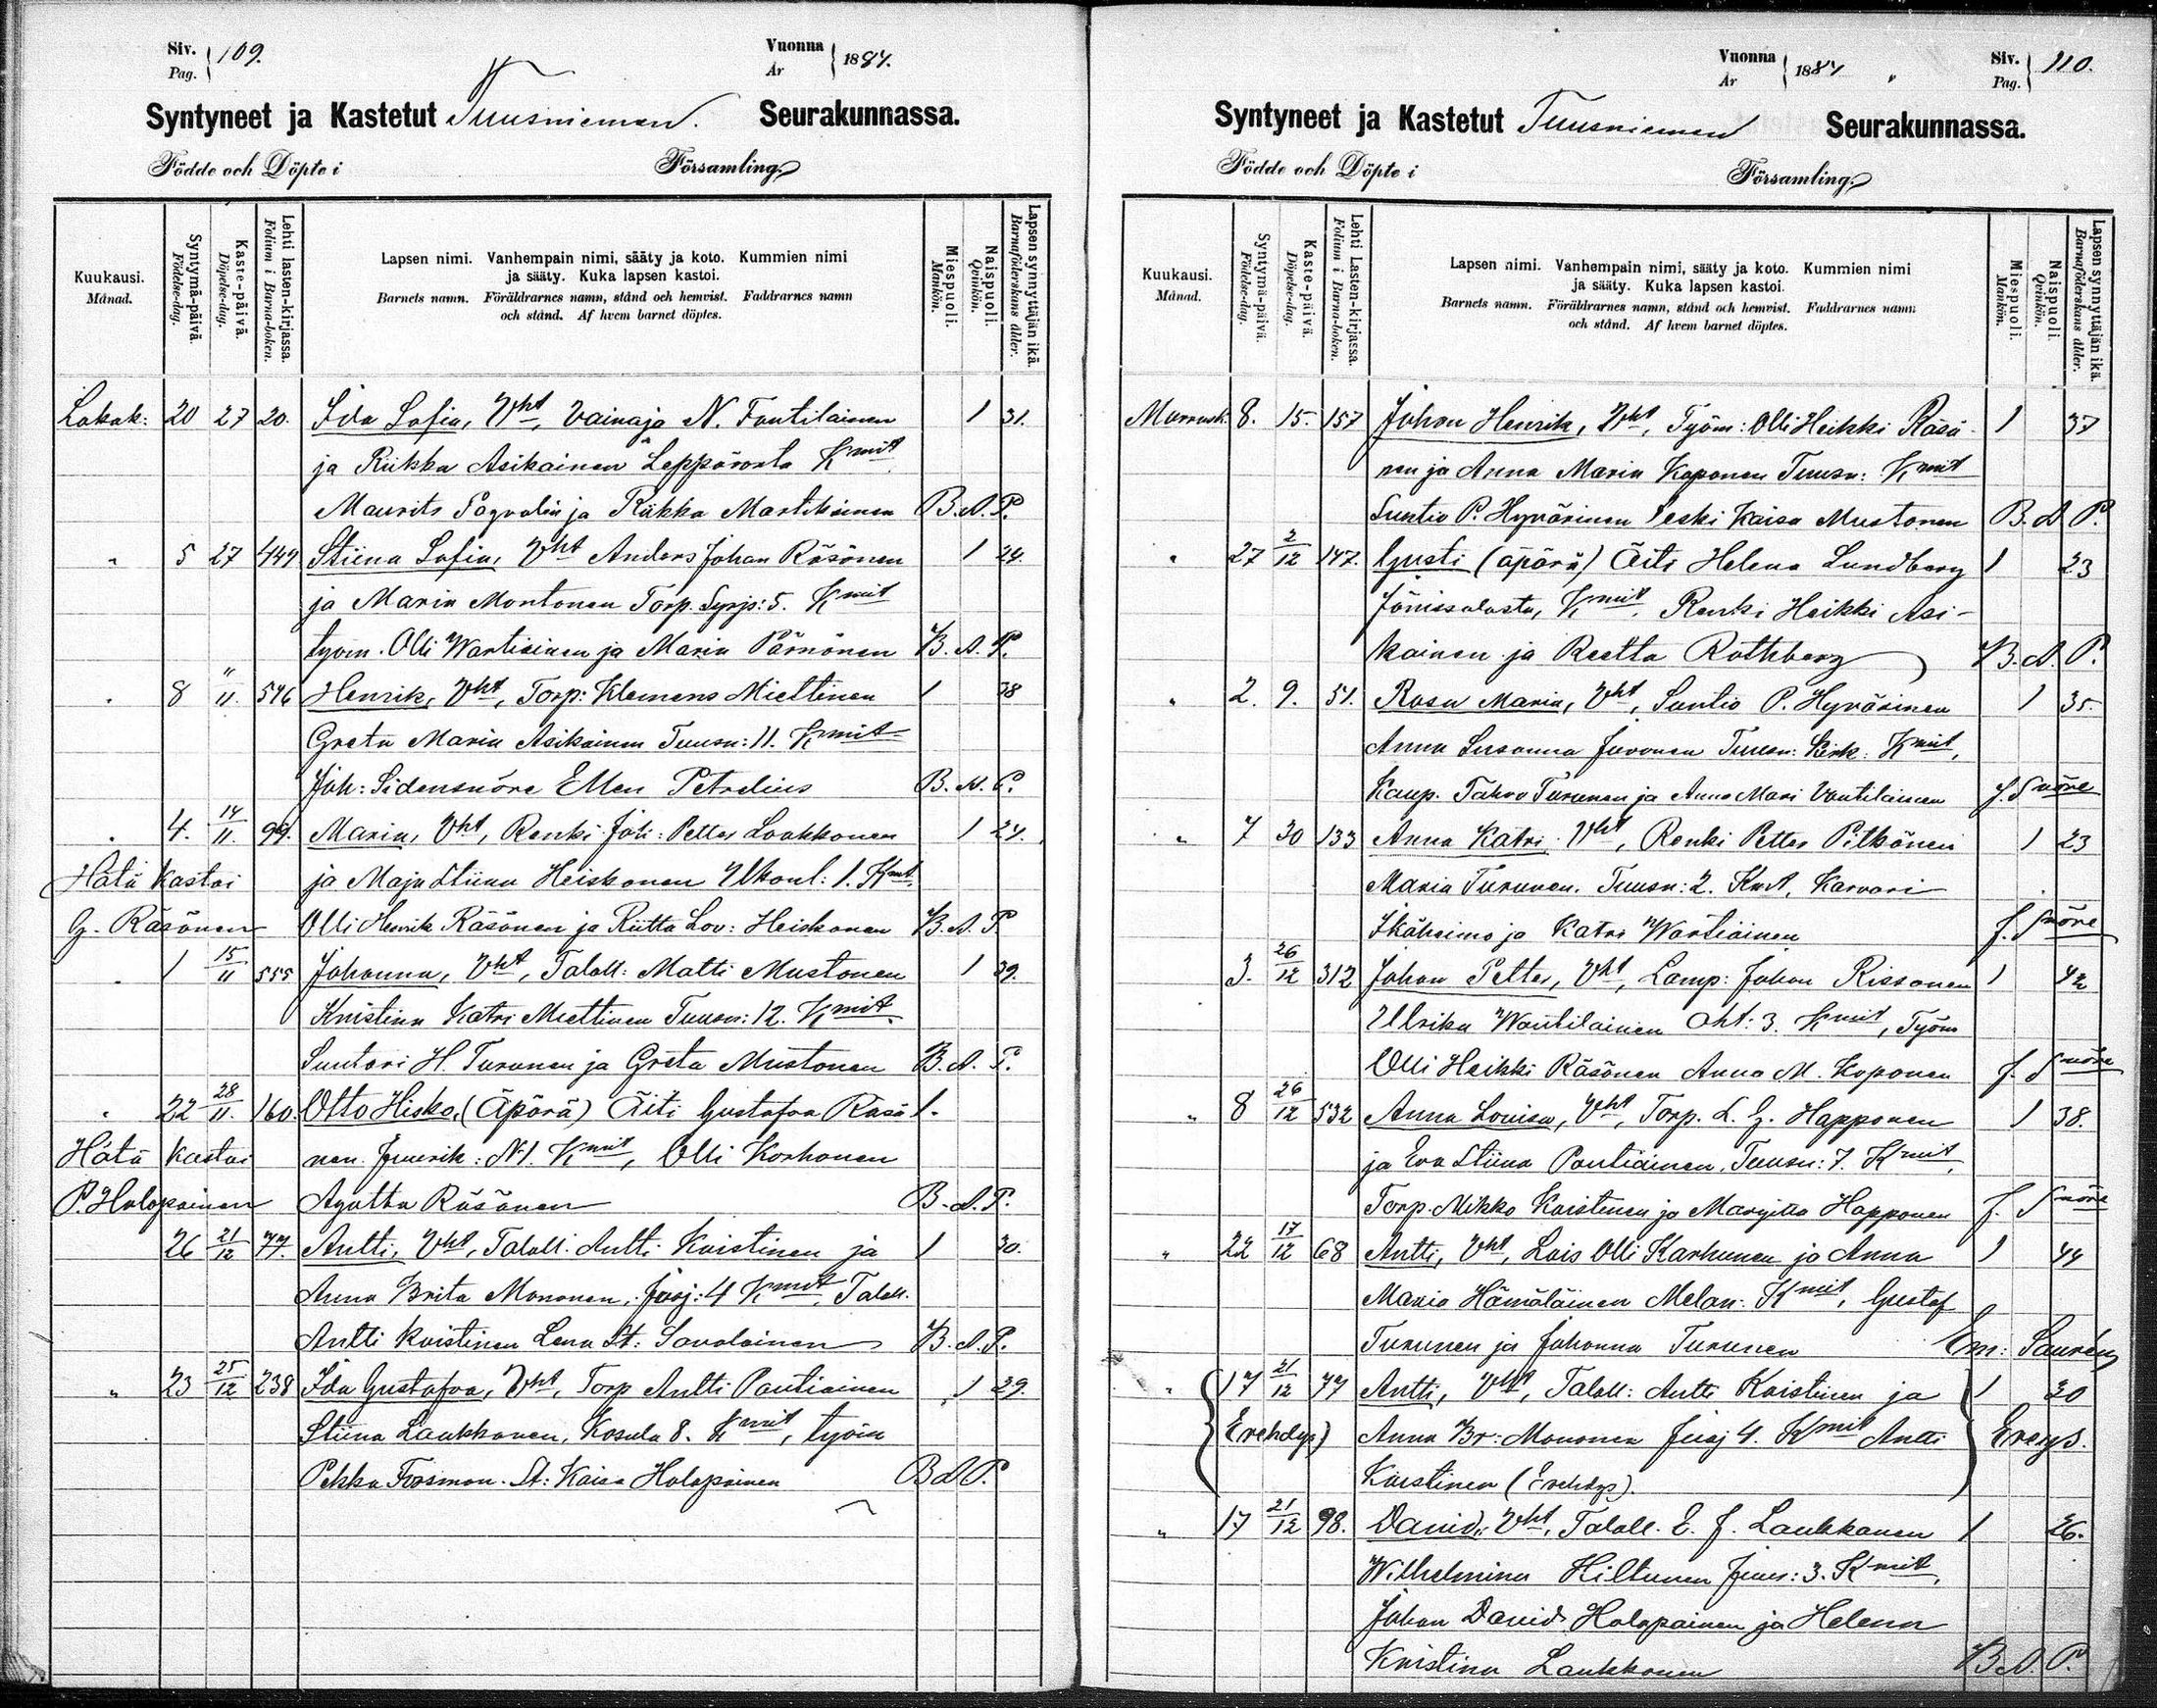 Siv. Pag. 109.
Vuonna År 1884.
Syntyneet ja Kastetut Tuusniemen. Seurakunnassa.
Födde och Döpte i Församling
Kuukausi. Månad.
Syntymä-päivä. Födelse-dag.
Kaste-päivä. Döpelse-dag.
Lehti lasten-kirjassa. Folium i Barna-boken.
Lapsen nimi. Vanhempain nimi, sääty ja koto. Kummien nimi
ja sääty. Kuka lapsen kastoi.
Barnets namn. Föräldrarnes namn, stånd och hemvist. Faddrarnes namn
och stånd. Af hvem barnet döptes.
Miespuoli. Mankön.
Naispuoli. Qvinkön.
Lapsen synnyttäjän ikä. Barnaföderskans ålder.
Lokak: 20 27 20. Ida Sofia, Vht, Vainaja N. Tautilainen 1 31.
ja Riikka Asikainen Leppäranta Kmit
Maurits ja Riikka Martikainen B.A.P.
" 5 27 449 Stiina Sofia, Vht Anders Johan Räsönen 1 24.
ja Maria Montonen Torp. Syrjs: 5. Kmit
työm. Olli Wartiainen ja Maria Pärnönen B.A.P.
" 8 " 11. 546 Henrik, Vht, Torp: Klemens Miettinen 1 38
Greta Maria Asikainen Tuusn: 11. Kmit
Joh: Sidensnöre Ellen Petrelius B.A.P.
" 4. 14/11. 99. Maria, Vht, Renki Joh: Petter Laakkonen 1 24.
Hätä kastoi ja Maja Stiina Heiskanen 1. Kmt.
G. Räsönen Olli Henrik Räsönen ja Riitta Lov: Heiskanen B.A.P.
" 1 15/11 555 Johanna, Vht, Talall: Matti Mustonen 1 39.
Kristina Katri Miettinen Tuusn: 12. Kmit.
Suutari H. Turunen ja Greta Mustonen B.A.P.
" 22 28/11. 160. Otto Hisko, (Äpärä) Äiti Gustafva Räsä 1.
Hätä kastoi nen. Juurik: N1. Kmit, Olli Korhonen
P. Holopainen Agatta Räsönen B.A.P.
26 21/12 77. Antti, Vht, Talall. Antti Kaistinen ja 1 30.
Anna Brita Mononen, Juoj: 4 Kmit, Talall.
Antti Kaistinen Lena St: Savolainen B.A.P.
" 23 25/12 238 Ida Gustafva, Vht, Torp Antti Pautiainen 1 29.
Stiina Laukkanen, Kosula 8. Kmit, työm
Pekka Forsman. St: Kaisa Holopainen B.A.P.
Vuonna År 1884
Siv. Pag. 110.
Syntyneet ja Kastetut Tuusniemen Seurakunnassa.
Födde och Döpte i Församling
Kuukausi. Månad.
Syntymä-päivä. Födelse-dag.
Kaste-päivä. Döpelse-dag.
Lehti Lasten-kirjassa. Folium i Barna-boken.
Lapsen nimi. Vanhempain nimi, sääty ja koto. Kummien nimi
ja sääty. Kuka lapsen kastoi.
Barnets namn. Föräldrarnes namn, stånd och hemvist. Faddrarnes namn
och stånd. Af hvem barnet döptes.
Miespuoli. Mankön.
Naispuoli. Qvinkön.
Lapsen synnyttäjän ikä. Barnaföderskans ålder.
Marrask. 8. 15. 157 Johan Henrik, Vht, Työm: Olli Heikki Räsä- 1 37
nen ja Anna Maria Koponen Tuusn: Kmit
Suntio P. Hyvärinen Leski Kaisa Mustonen B.A.P.
" 27 2/12 147. Gusti (äpärä) Äiti Helena Lundberg 1 23
Jänissalosta, Kmit, Renki Heikki Asi-
kainen ja Reetta Rothberg B.A.P.
" 2. 9. 51. Rosa Maria, Vht, Suntio P. Hyvärinen 1 35.
Anna Susanna Juvonen Tuusn: Kirk: Kmit,
Kaup. Tahvo Turunen ja Anna Mari Vautilainen J. Snöre
" 7 30 133 Anna Katri Vht, Renki Petter Pitkänen 1 23
Maria Turunen. Tuusn: 2. Kmt, Karvari
Ikäheimo ja Katri Wartiainen J. Snöre
3. 26/12 312 Johan Petter, Vht, Lamp: Johan Rissanen 1 42
Ulrika Wautilainen Oht: 3. Kmit, Työm
Olli Heikki Räsönen Anna M. Koponen J. Snöre
" 8 26/12 532 Anna Lovisa, Vht, Torp. L. G. Happonen 1 38.
ja Eva Stiina Pautiainen, Tuusn: 7. Kmit,
Torp. Mikko Kaistinen ja Margitta Happonen J. Snöre
" 22 17/12 68 Antti, Vht, Lois Olli Karhunen ja Anna 1 44
Maria Hämäläinen Melan: Kmit, Gustaf
Turunen ja Johanna Turunen Em: Saurén
" 17 21/12 77 Antti, Vht, Talall: Antti Kaistinen ja 1 30
(Erehdys) Anna Br: Mononen Juoj 4. Kmit Antti Ereys.
Kaistinen (Erehdys).
" 17 21/12 98. David, Vht, Talall. E. J. Laukkanen 1 26.
Wilhelmina Hiltunen Juur: 3. Kmit,
Johan David Holopainen ja Helena
Kristina Laukkanen B.A.P.